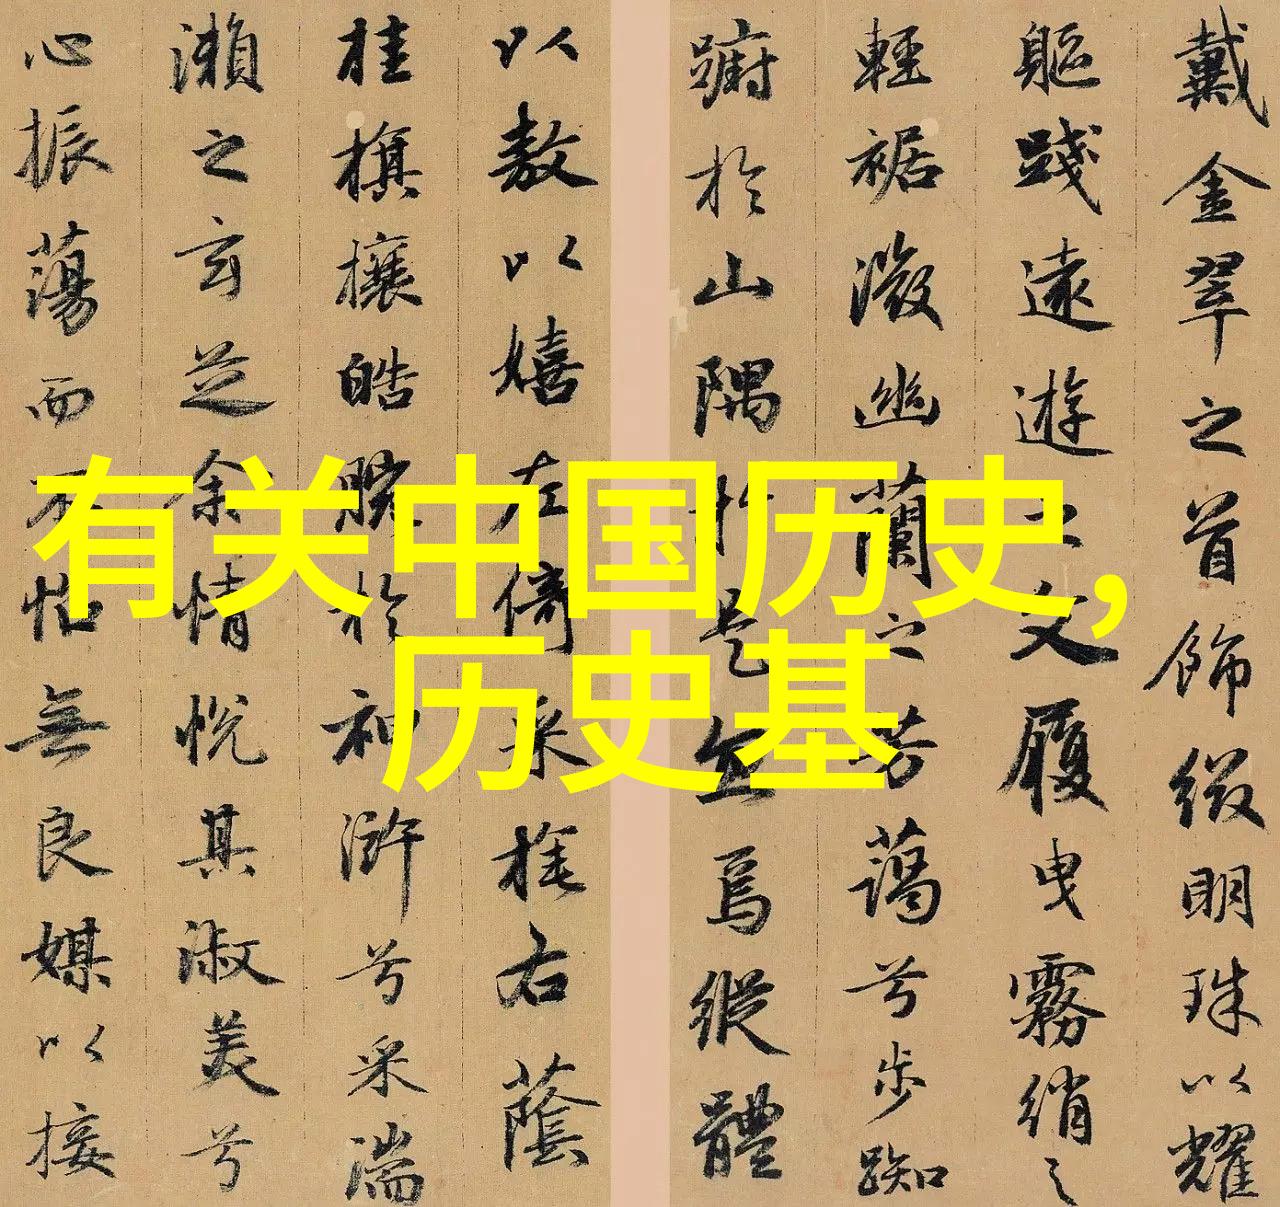 有关中国历史,
历史基
戴金翠之首飾綴明珠以耀
軀踐遠遊之文履曳霧綃之
輕裾微幽蘭之芳藹兮步踟
躕於山隅於是忽焉縱體
以敖以嬉左倚采旄右蔭
桂旗攘皓腕於神滸兮采湍
瀨之玄芝余情悅其淑美兮
心振蕩而不怡無良媒以接